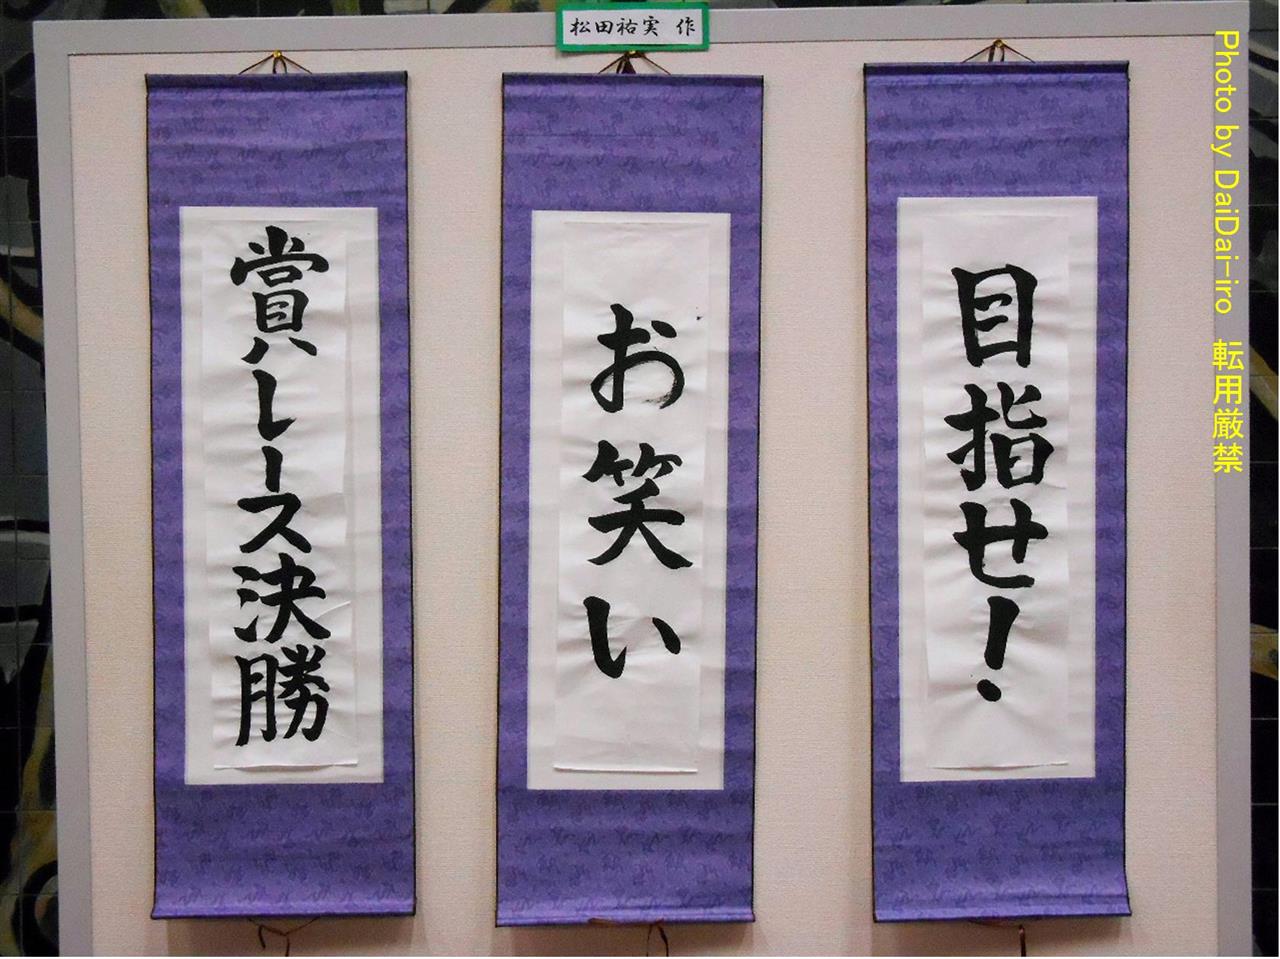 松田祐実 作
目指せ!
お笑い
賞レース決勝
Photo by DaiDai-iro 転用厳禁